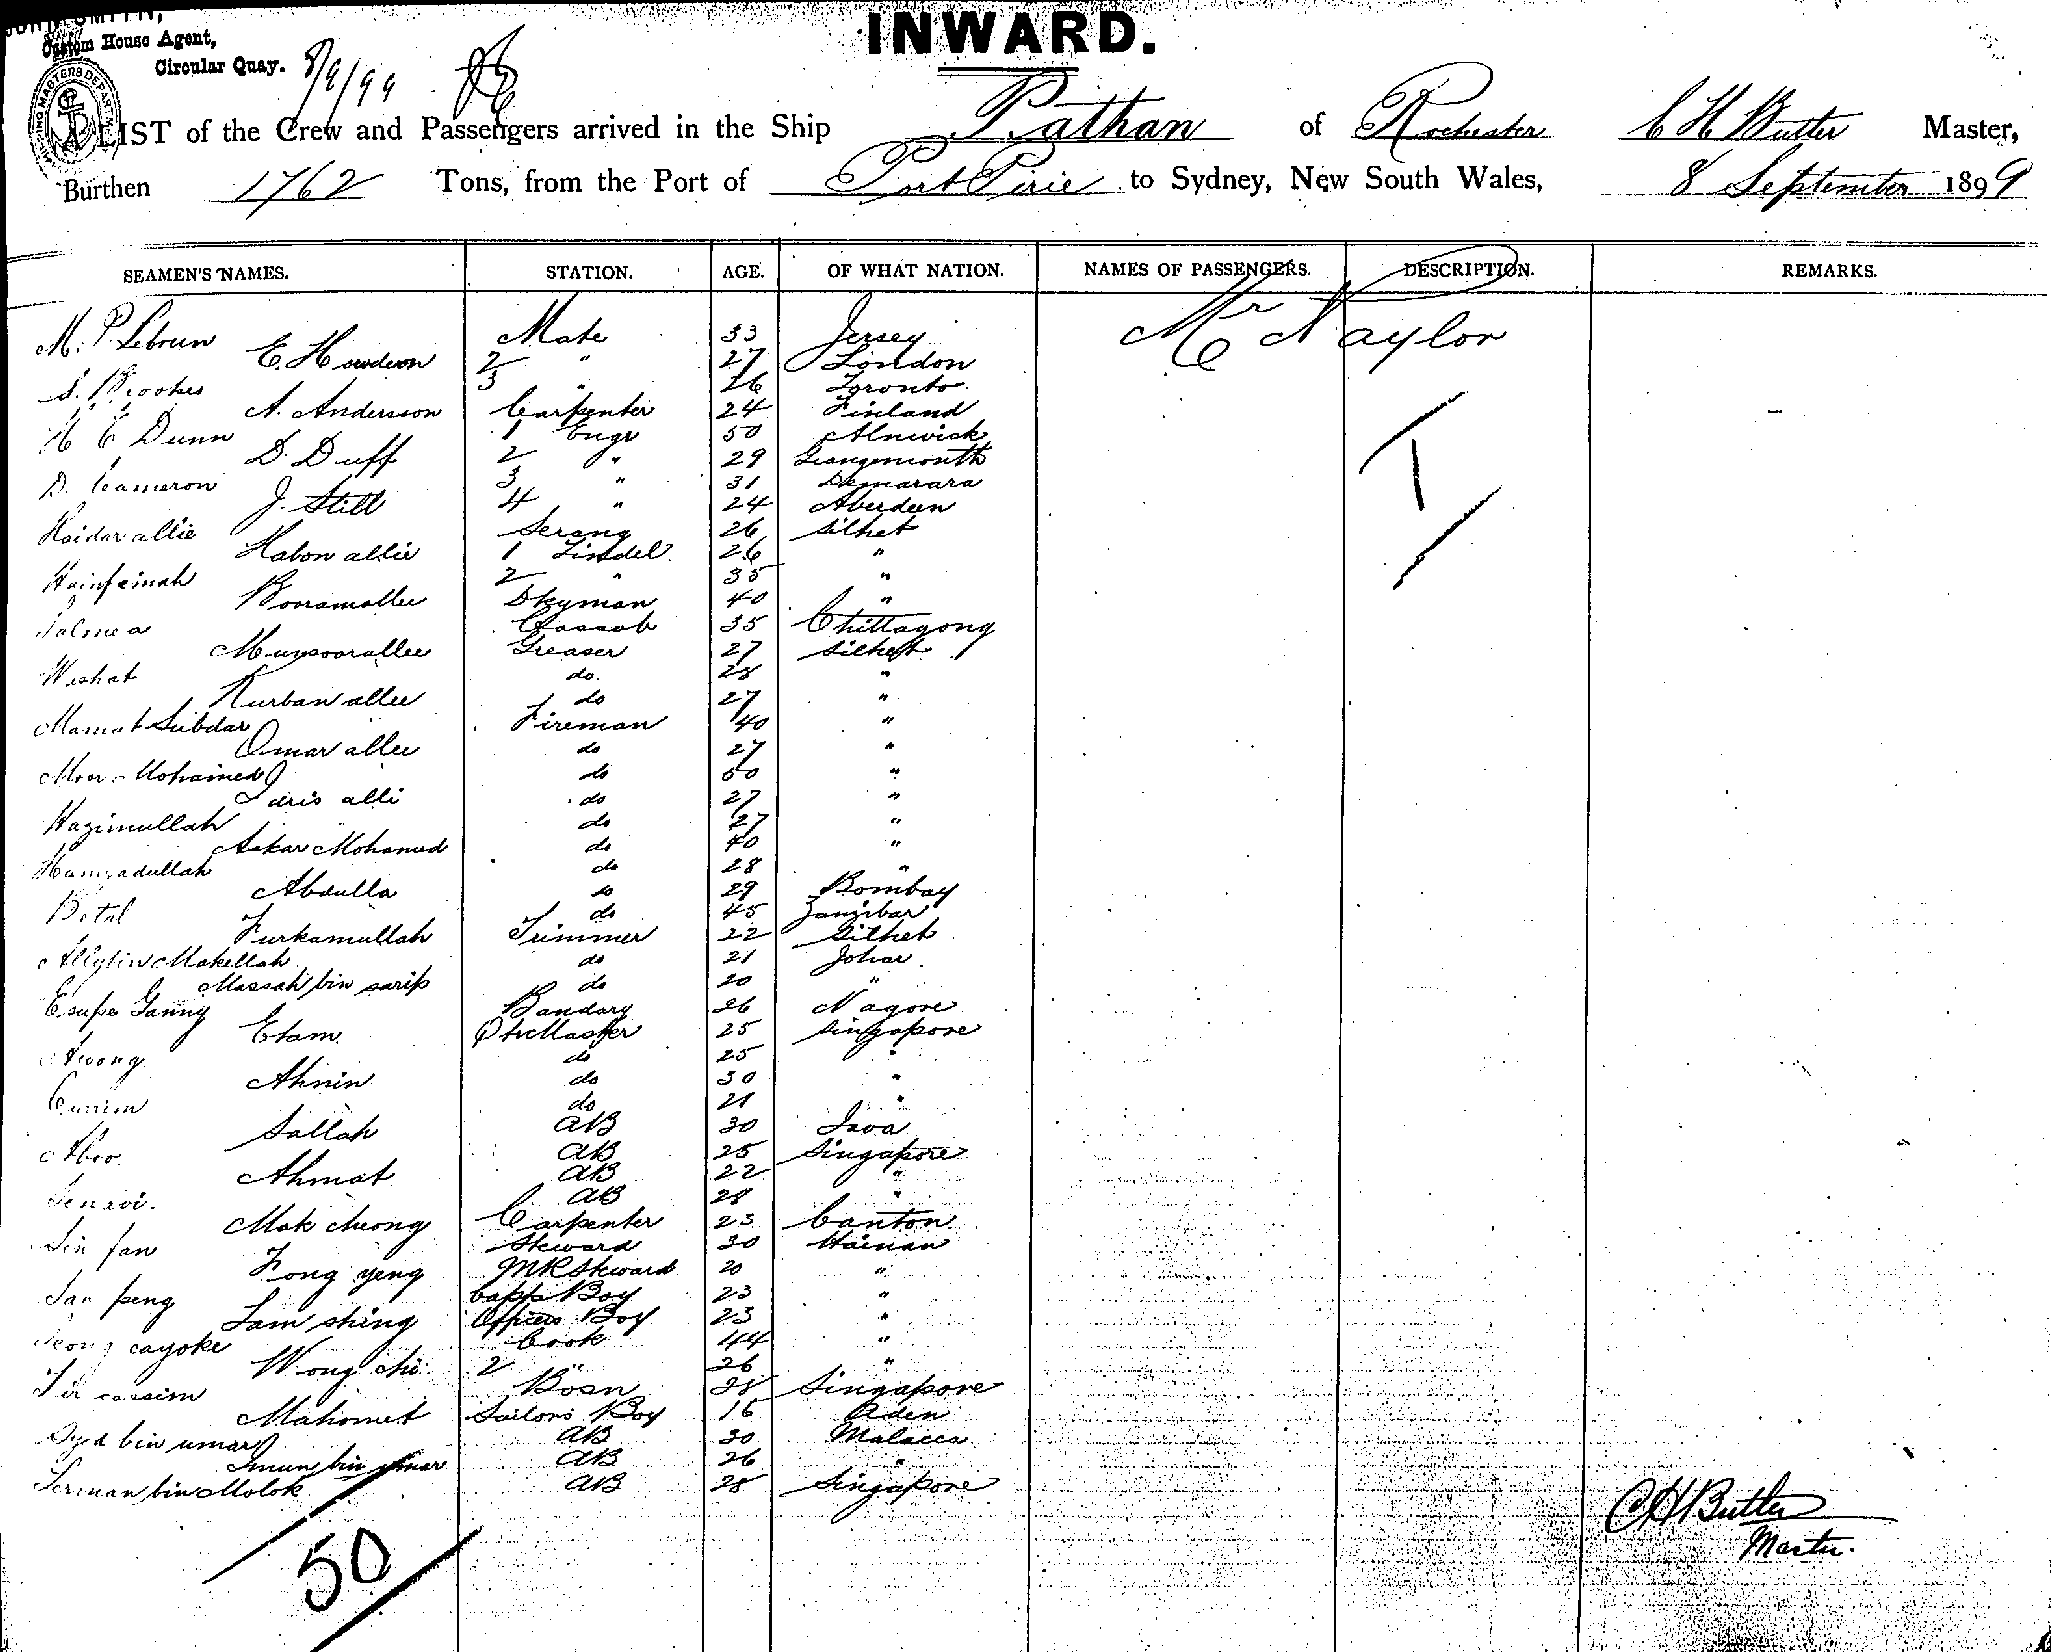 INWARD.
Custom House Agent,
Circular Quay. 8/9/99
A LIST of the Crew and Passengers arrived in the Ship Pathan of Rochester C H Butler Master,
Burthen 1762 Tons, from the Port of Port Pirie to Sydney, New South Wales, 8 September 1899
SEAMEN'S NAMES. STATION. AGE. OF WHAT NATION. NAMES OF PASSENGERS. DESCRIPTION. REMARKS.
M. P. Lebrun Mate 33 Jersey Mr Naylor
E. Howdeon 2 " 27 London
S. Brookes 3 " 26 Toronto
A. Anderson Carpenter 24 Finland
H E Dunn 1 Engr 50 Alnwick
D. Duff 2 " 29 Grangemouth
D. Cameron 3 " 31 Demarara
J. Still 4 " 24 Aberdeen
Haidar allie Serang 26 Silhet
Habon allie 1 Tindel 26 "
2 " 35 "
Booramallee Dkyman 40 "
Salmea Cassab 35 Chittagong
Munsoorallee Greaser 27 Silhet
Weshat do. 28 "
Kurban allee do 27 "
Mamat Subdar Fireman 40 "
Omar allee do 27 "
Moor Mohamed do 50 "
Idris alli do 27 "
Hazimullah do 27 "
Askar Mohamed do 40 "
Hamzadullah do 28 "
Abdulla do 29 Bombay
Botal do 45 Zanzibar
Furkamullah Trimmer 22 Silhet
do 21 Johar
Massah bin sarip do 20 "
Esupe Ganny Bandary 26 Nagore
Etam Qtr Master 25 Singapore
Awong do 25 "
Ahmin do 30 "
Currim do 21 "
Sallah AB 30 Java
Aboo AB 25 Singapore
Ahmat AB 22 "
Senawi AB 28 "
Mak cheong Carpenter 23 Canton
Lin fan Steward 30 Hainan
Fong yeng MR Steward 20 "
Tan peng Capts Boy 23 "
Lam shing Officers Boy 23 "
cayoke Cook 44 "
Wong chi 2 " 26 "
cassim Bosn 38 Singapore
Mahomet Sailors Boy 16 Aden
Syd bin umar AB 30 Malacca
Imun bin umar AB 26 "
Serman bin Molok AB 28 Singapore
C H Butler
Master.
50